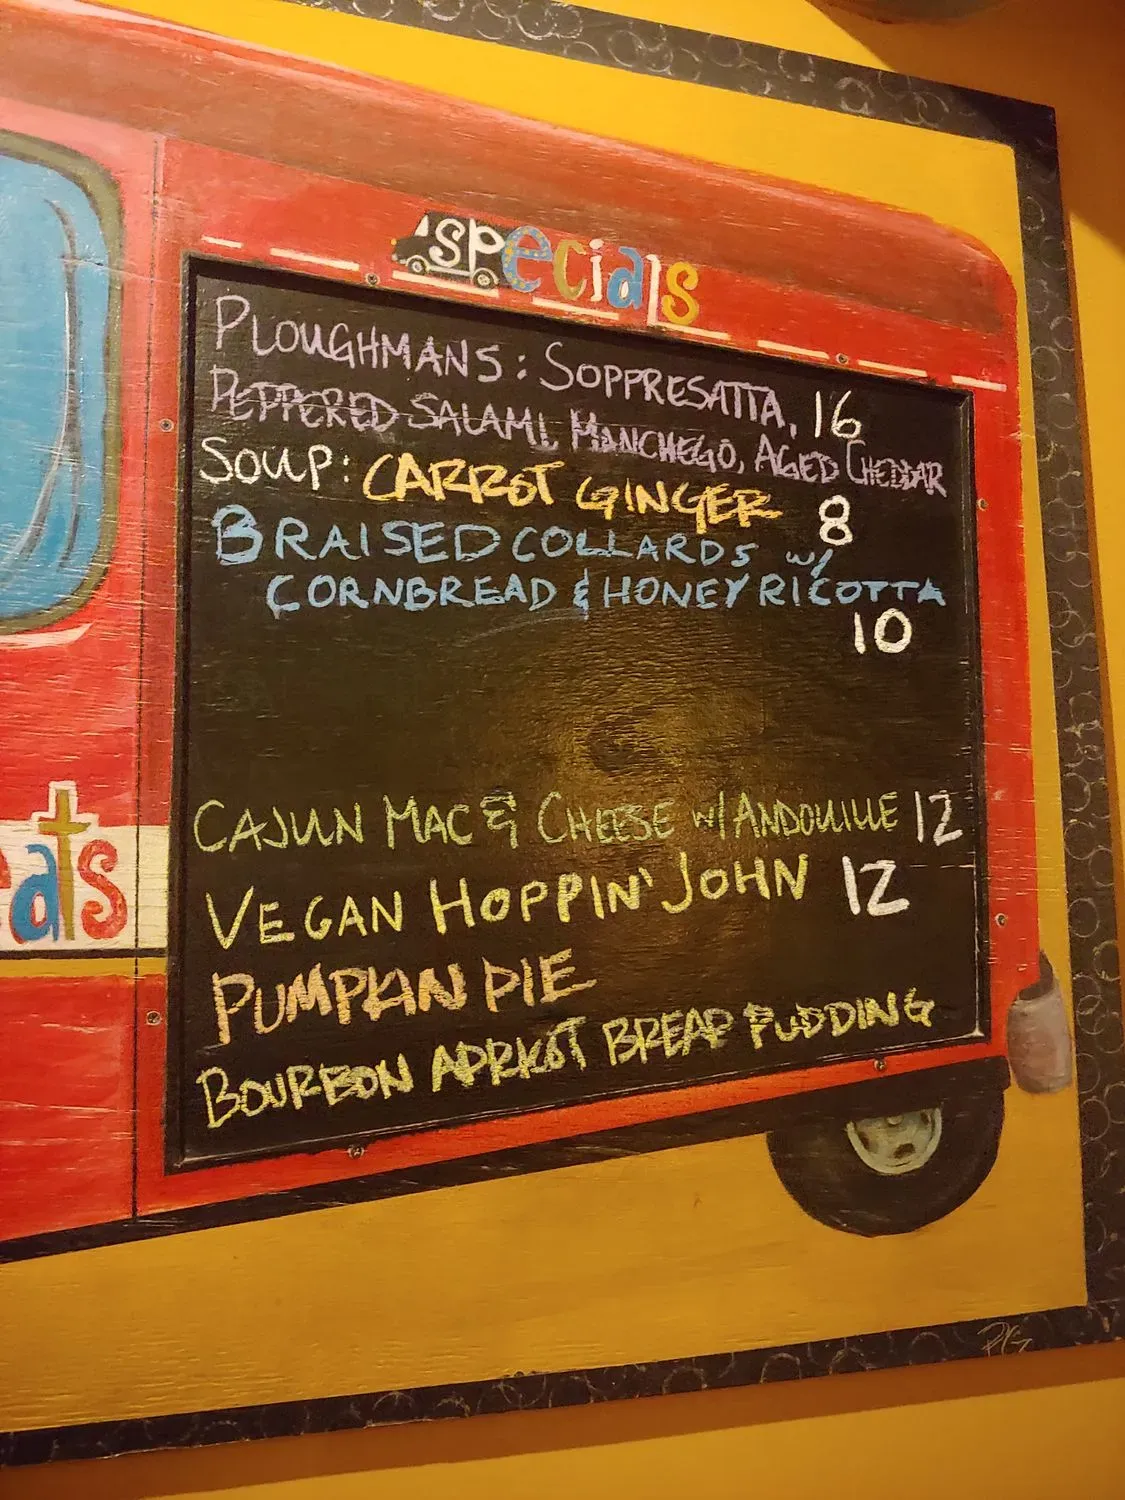 specials
PLOUGHMANS: SOPPRESATTA, 16
PEPPERED SALAMI, MANCHEGO, AGED CHEDDAR
SOUP: CARROT GINGER 8
BRAISED COLLARDS w/
CORNBREAD & HONEY RICOTTA
10
CAJUN MAC & CHEESE w/ ANDOUILLE 12
VEGAN HOPPIN' JOHN 12
PUMPKIN PIE
BOURBON APRICOT BREAD PUDDING
eats
PG